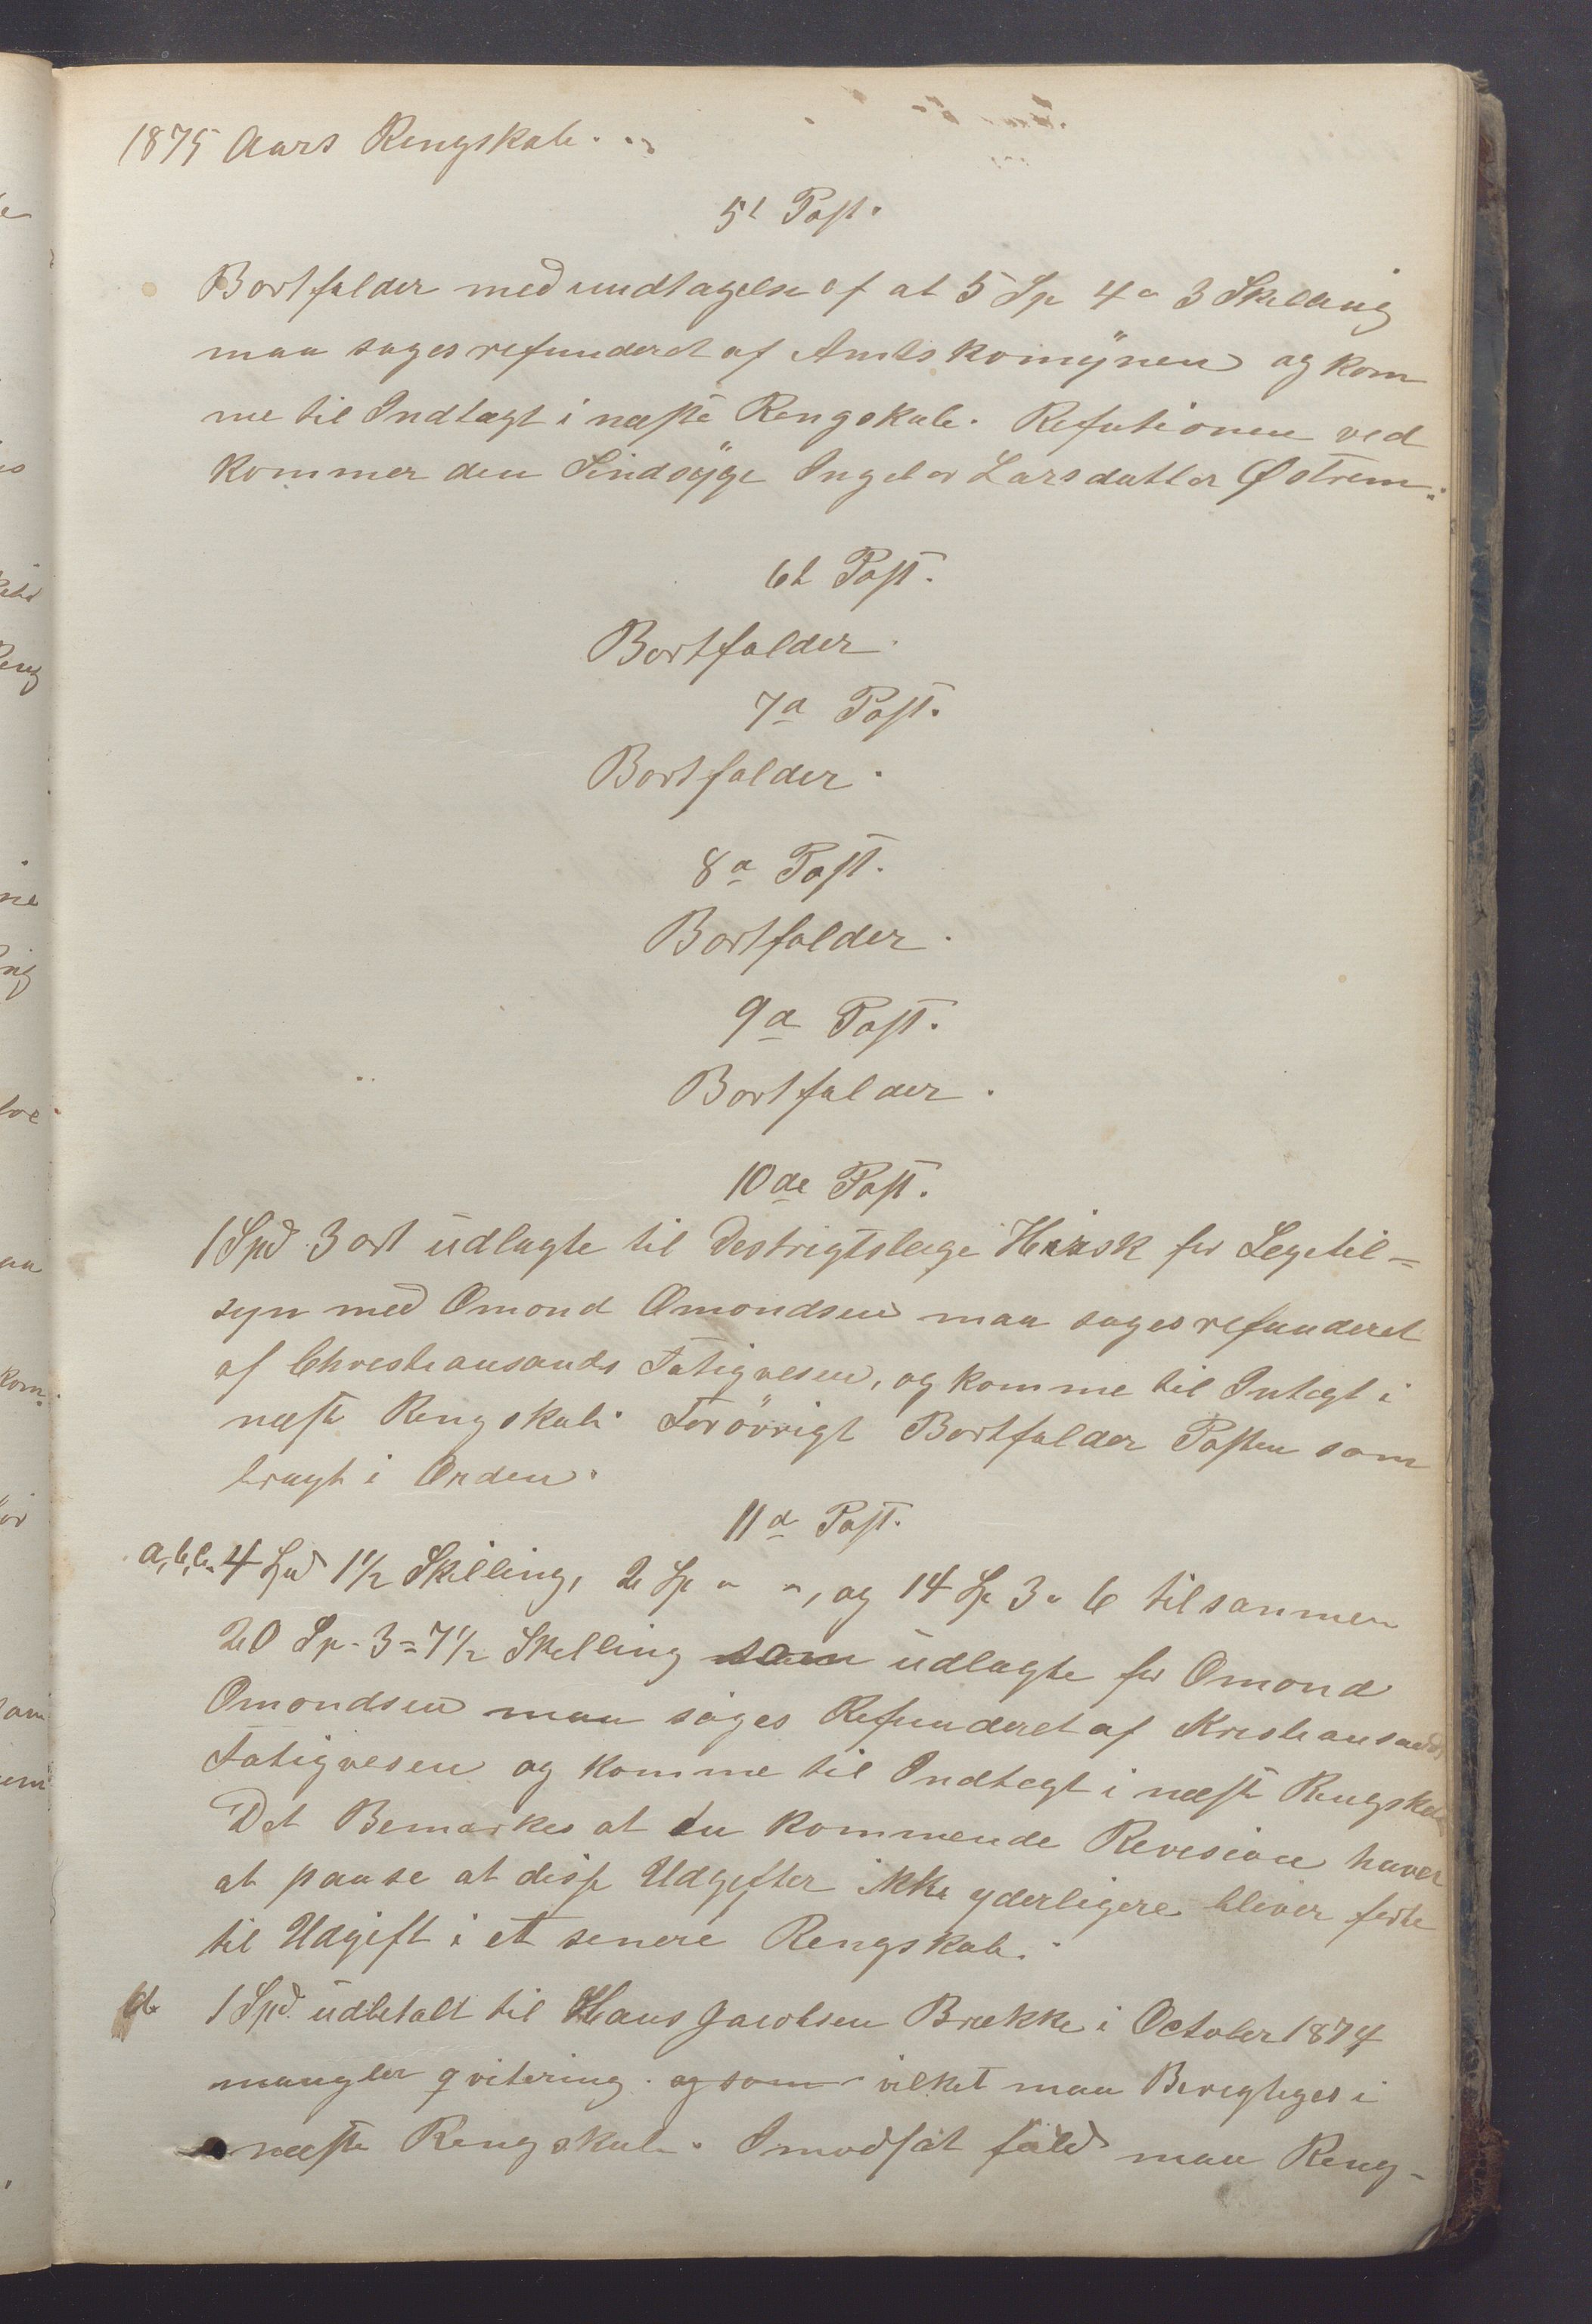 1875 Aars Rengskab.
5t Post.
Bortfalder med undtagelse af at 5 Sp 4 " 3 Skelling
maa søges refunderet af Amtskomynen og kom
me til Indtægt i næste Rengskab. Refutionen ved
kommer den Sindsÿge Ingeb or Larsdatter Østrem.
6t Post.
Bortfalder.
7a Post.
Bortfalder.
8a Post.
Bortfalder.
9a Post.
Bortfalder.
10de Post.
1 Spd 3 ort udlagte til Destrigtslæge Hirsk for Legetil-
syn med Omond Omondsen maa søges refunderet
af Chresteansands Fatigvesen, og komme til Integt i
næste Rengskab. Forövrigt Bortfalder Posten som
bragt i Orden.
11a Post.
a, b, c. 4 Spd 1½ Skilling, 2 Sp " ", og 14 Sp 3 " 6 tilsammen
20 Sp. 3 = 7½ Skelling som udlagte for Omond
Omondsen maa søges Refunderet af Kresteansands
Fatigvesen og komme til Indtegt i næste Rengskab
Det Bemærkes at den kommende Revesion haver
at paase at disse Udgifter ikke yderligere bliver førte
til Udgift i et senere Rengskab.
d. 1 Spd. udbetalt til Hans Jacobsen Brække i October 1874
mangler qvitering. og som vilket maa Beregtiges i
næste Rengskab. I modsat fald maa Reng-